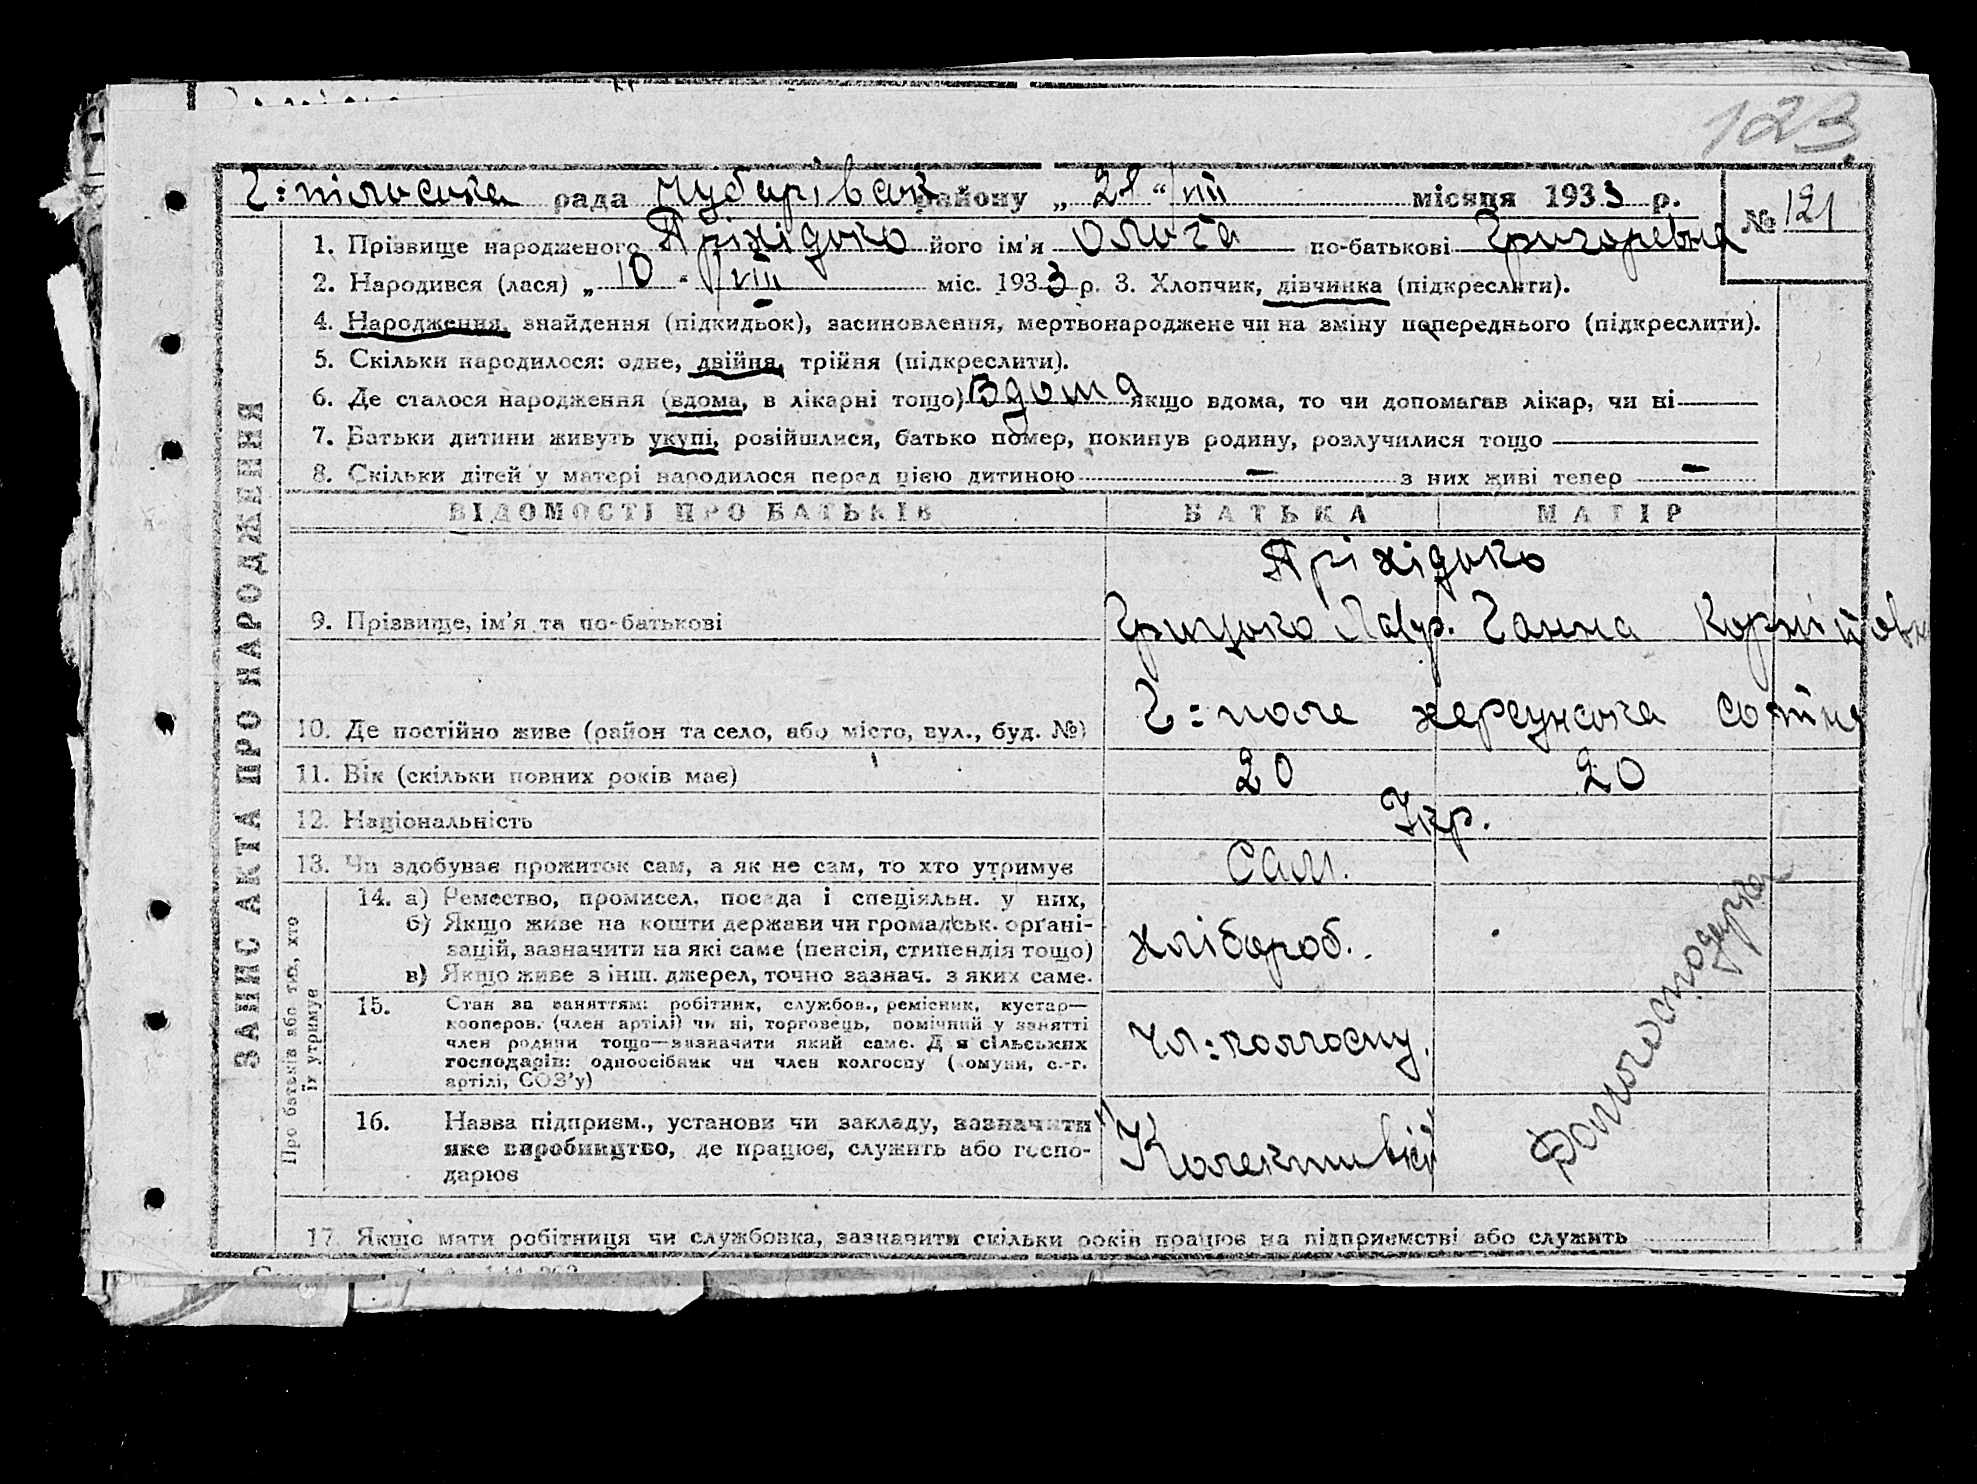 123
Г=пільська рада Чубарівськ району „ 21 “ VIII місяця 1933 р. № 121
ЗАПИС АКТА ПРО НАРОДЖЕННЯ
1. Прізвище народженого Пріхідько його ім'я Ольга по-батькові Григоревна
2. Народився (лася) „ 10 " VIII міс. 1933 р. 3. Хлопчик, дівчинка (підкреслити).
4. Народження, знайдення (підкидьок), засиновлення, мертвонароджене чи на зміну попереднього (підкреслити).
5. Скільки народилося: одне, двійня, трійня (підкреслити).
6. Де сталося народження (вдома, в лікарні тощо) Вдома якщо вдома, то чи допомагав лікар, чи ні
7. Батьки дитини живуть укупі, розійшлися, батько помер, покинув родину, розлучилися тощо
8. Скільки дітей у матері народилося перед цією дитиною — з них живі тепер —
ВІДОМОСТІ ПРО БАТЬКІВ БАТЬКА МАТІР
Пріхідько
9. Прізвище, ім'я та по-батькові Грицько Лавр. Ганна Корніївн
10. Де постійно живе (район та село, або місто, вул., буд. №) Г=поле херсунська сотня
11. Вік (скільки повних років має) 20 20
12. Національність Укр.
13. Чи здобуває прожиток сам, а як не сам, то хто утримує Сам.
Про батьків або тих, хто їх утримує
14. а) Ремество, промисел, посада і спеціяльн. у них,
б) Якщо живе на кошти держави чи громадськ. орґані-
зацій, зазначити на які саме (пенсія, стипендія тощо)
в) Якщо живе з інш. джерел, точно зазнач. з яких саме.
хлібороб.
Домогосподарка
15. Стан за заняттям: робітник, службов., ремісник, кустар—
кооперов. (член артілі) чи ні, торговець, помічний у занятті
член родини тощо—зазначити який саме. Для сільських
господарів: одноосібник чи член колгоспу (комуни, с.-г.
артілі, СОЗ'у)
чл=колгоспу.
16. Назва підприєм., установи чи закладу, зазначити
яке виробництво, де працює, служить або госпо-
дарює
17. Якщо мати робітниця чи службовка, зазначити скільки років працює на підприємстві або служить